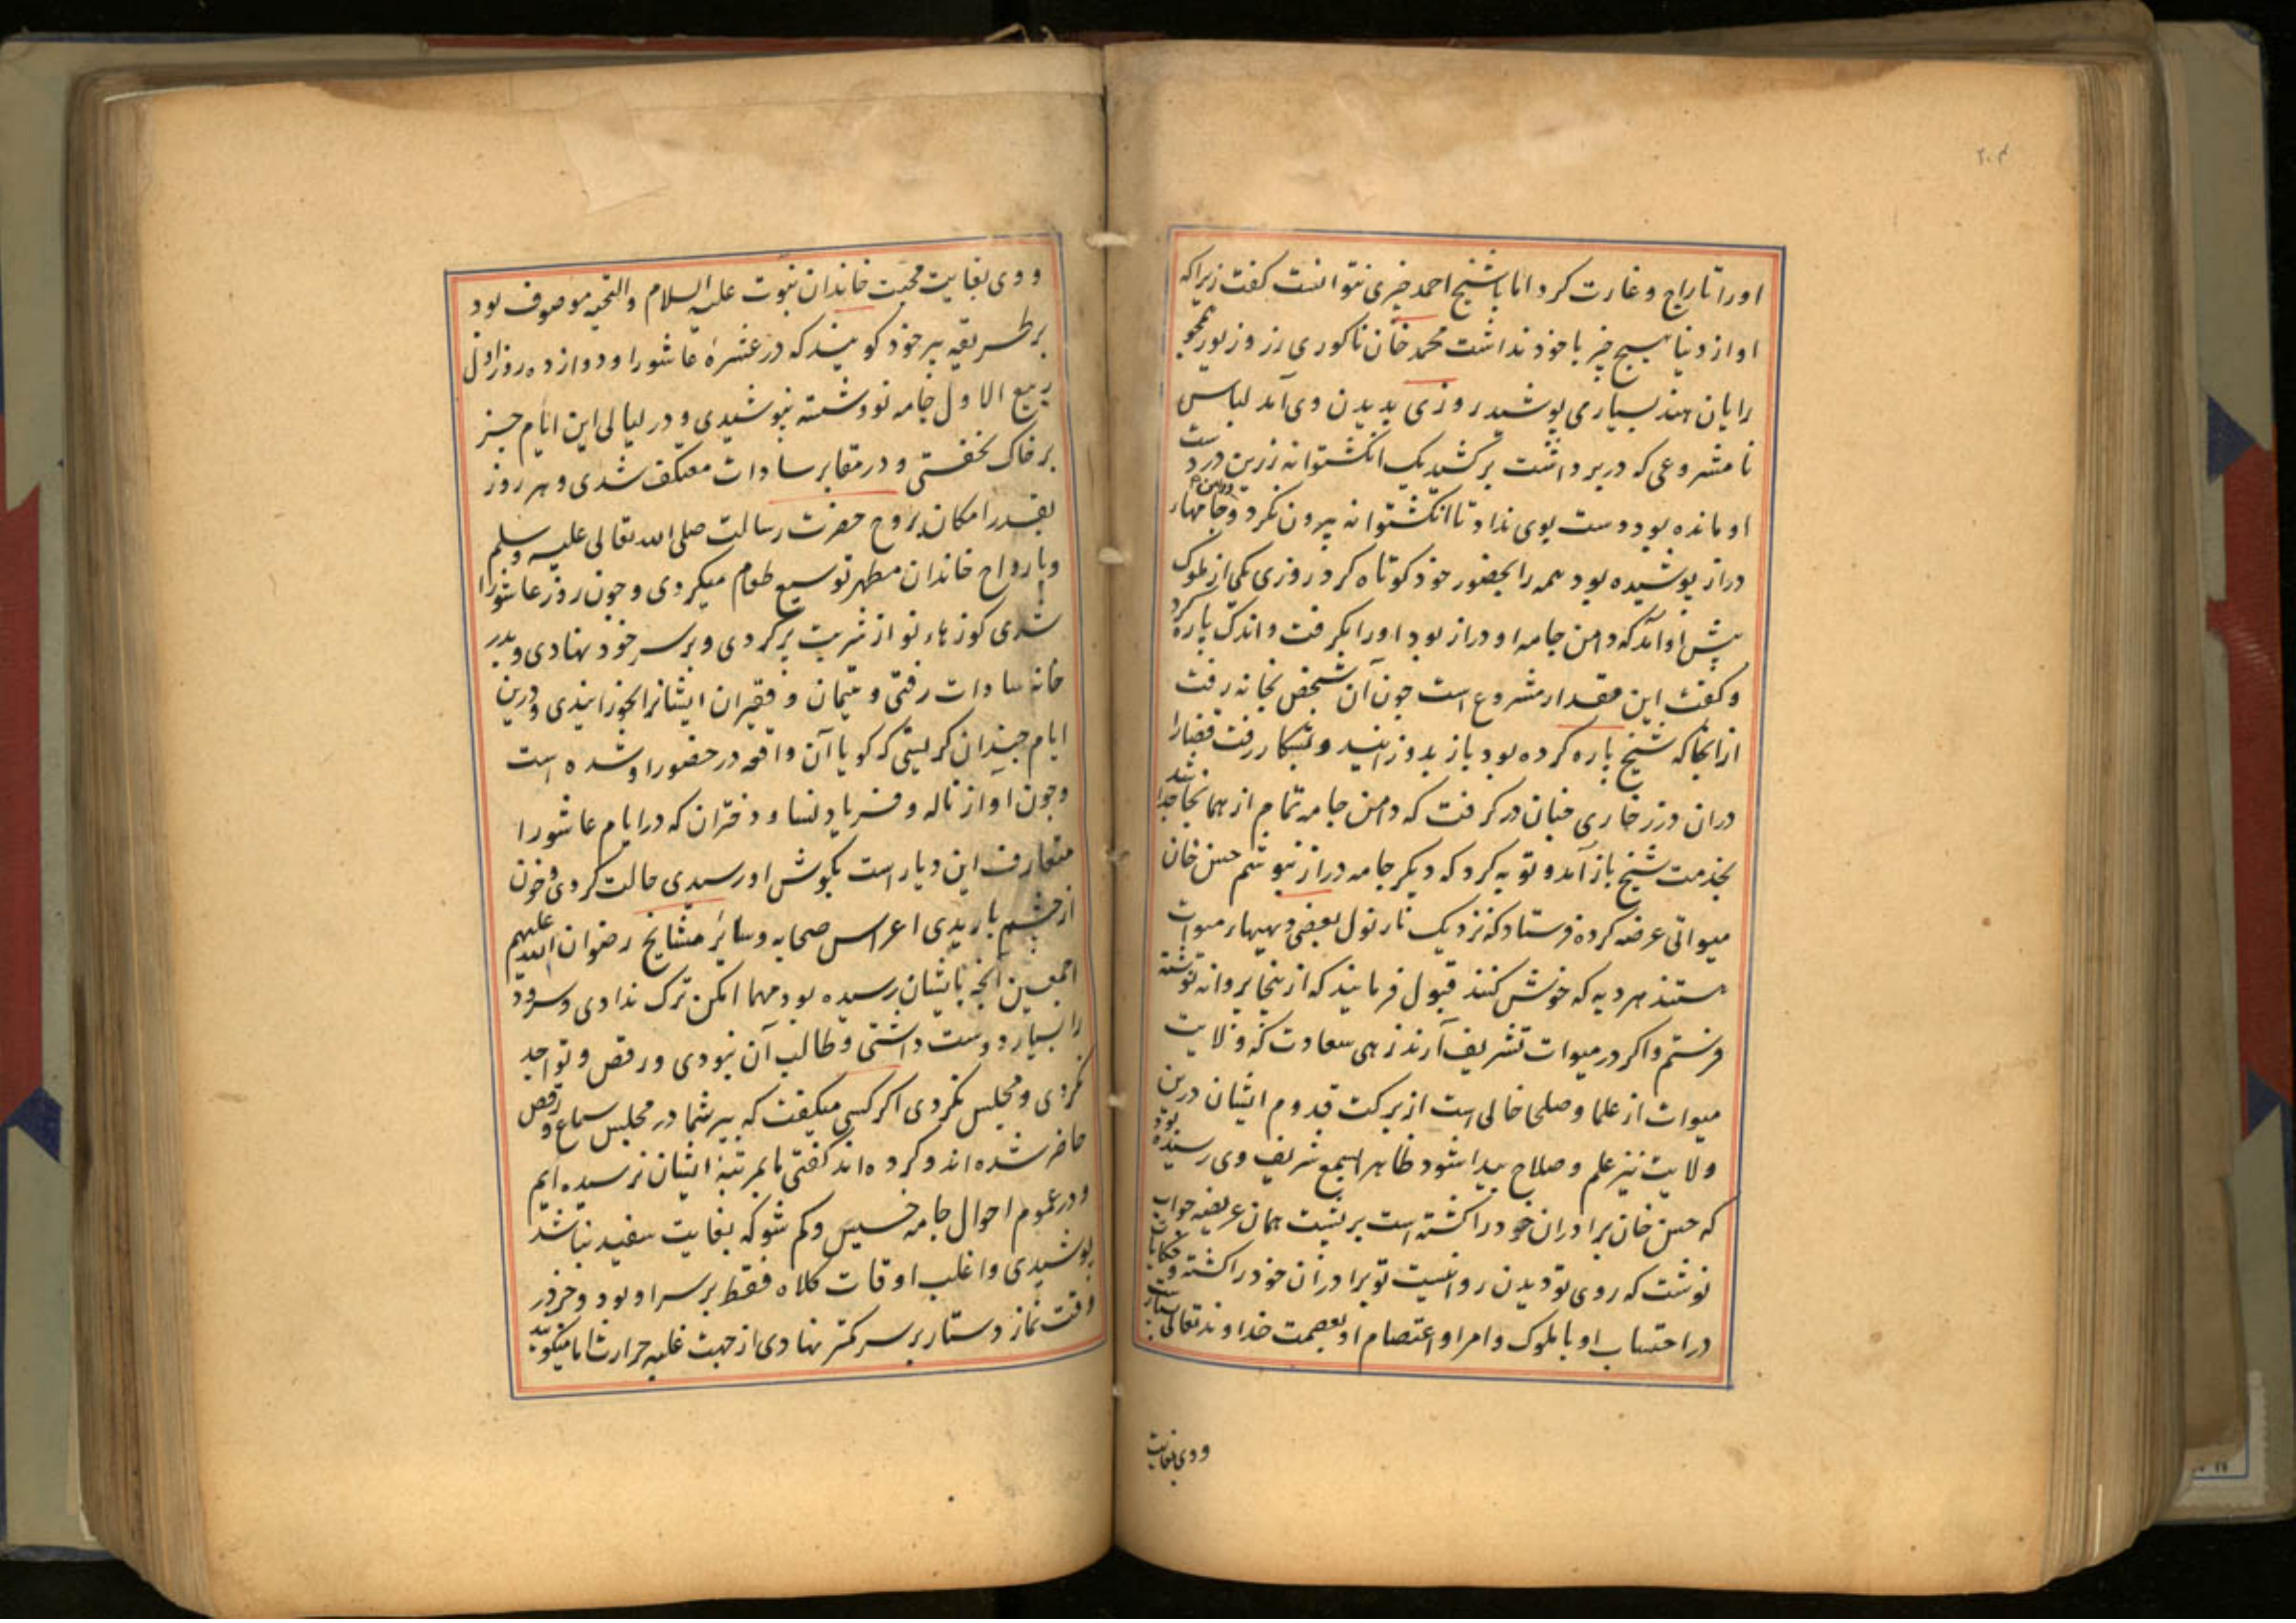 ۲۰۴
اورا تاراج و غارت کرد اما با شیخ احمد چیزی نتوانست کفت زیراکه
او از دنیا هیچ چیز با خود نداشت محمد خان ناکوری زر و زیور همچو
رایان هند بسیاری پوشید روزی بدیدن وی آمد لباس
نا مشروعی که دربر داشت برکشید یک انکشتوانه زرین در دست
او مانده بود دست بوی نداد تا انکشتوانه بیرون نکرد و جامهاء
دراز پوشیده بود همه را بحضور خود کوتاه کرد روزی یکی از ملوک
پیش او آمد که دامن جامه او دراز بود اورا بکرفت و اندک پاره کرد
وکفت این مقدار مشروع است چون آن شخص بخانه رفت
از انجا که شیخ پاره کرده بود باز بدوزانید و بشکار رفت قضارا
دران درز خاری چنان درکرفت که دامن جامه تمام از همانجا جدا شد
بخدمت شیخ باز آمد و توبه کرد که دیکر جامه دراز نپوشم حسن خان
میواتی عرضه کرده فرستاد که نزدیک نارنول بعضی دیهیهاء میوات
هستند هر دیه که خوش کنند قبول فرمایند که از ینجا پروانه نوشته
فرستم و اکر در میوات تشریف آرند زهی سعادت که ولایت
میوات از علما و صلحا خالی است از برکت قدوم ایشان درین
ولایت نیز علم و صلاح پیدا شود ظاهرا بسمع شریف وی رسیده بود
که حسن خان برادران خود را کشته است بر پشت همان عریضه جواب
نوشت که روی تو دیدن روا نیست تو برادران خود را کشته و حکایات
در احتساب او با ملوک و امرا و اعتصام او بعصمت خداوند تعالی بسیار است
و وی بغایت
و وی بغایت محبت خاندان نبوت علیه السلام والتحیه موصوف بود
بر طریقه پیر خود کویند که در عشرهٔ عاشورا و دوازده روز اول
ربیع الاول جامه نو و شسته نپوشیدی و در لیالی این ایام جز
بر خاک نخفتی و در مقابر سادات معتکف شدی و هر روز
بقدر امکان بروح حضرت رسالت صلی الله تعالی علیه وسلم
و بارواح خاندان مطهر توسیع طعام میکردی و چون روز عاشورا
شدی کوزهاء نو از شربت پرکردی و بر سر خود نهادی و بدر
خانهٔ سادات رفتی و یتیمان و فقیران ایشانرا بخورانیدی و درین
ایام چندان کریستی که کویا آن واقعه در حضور او شده است
و چون آواز ناله و فریاد نسا و دختران که در ایام عاشورا
متعارف این دیار است بکوش او رسیدی حالت کردی و خون
از چشم باریدی اعراس صحابه و سائر مشایخ رضوان الله علیهم
اجمعین آنچه بایشان رسیده بود مهما امکن ترک ندادی و سرود
را بسیار دوست داشتی و طالب آن نبودی و رقص و تواجد
نکردی و مجلس نکردی اکر کسی میکفت که پیر شما در مجلس سماع و رقص
حاضر شده اند و کرده اند کفتی ما بمرتبهٔ ایشان نرسیده ایم
و در عموم احوال جامه خسیس و کم شو که بغایت سفید نباشد
پوشیدی و اغلب اوقات کلاه فقط بر سر او بود و جز در
وقت نماز دستار بر سر کمتر نهادی از جهت غلبه حرارت اما میکویند